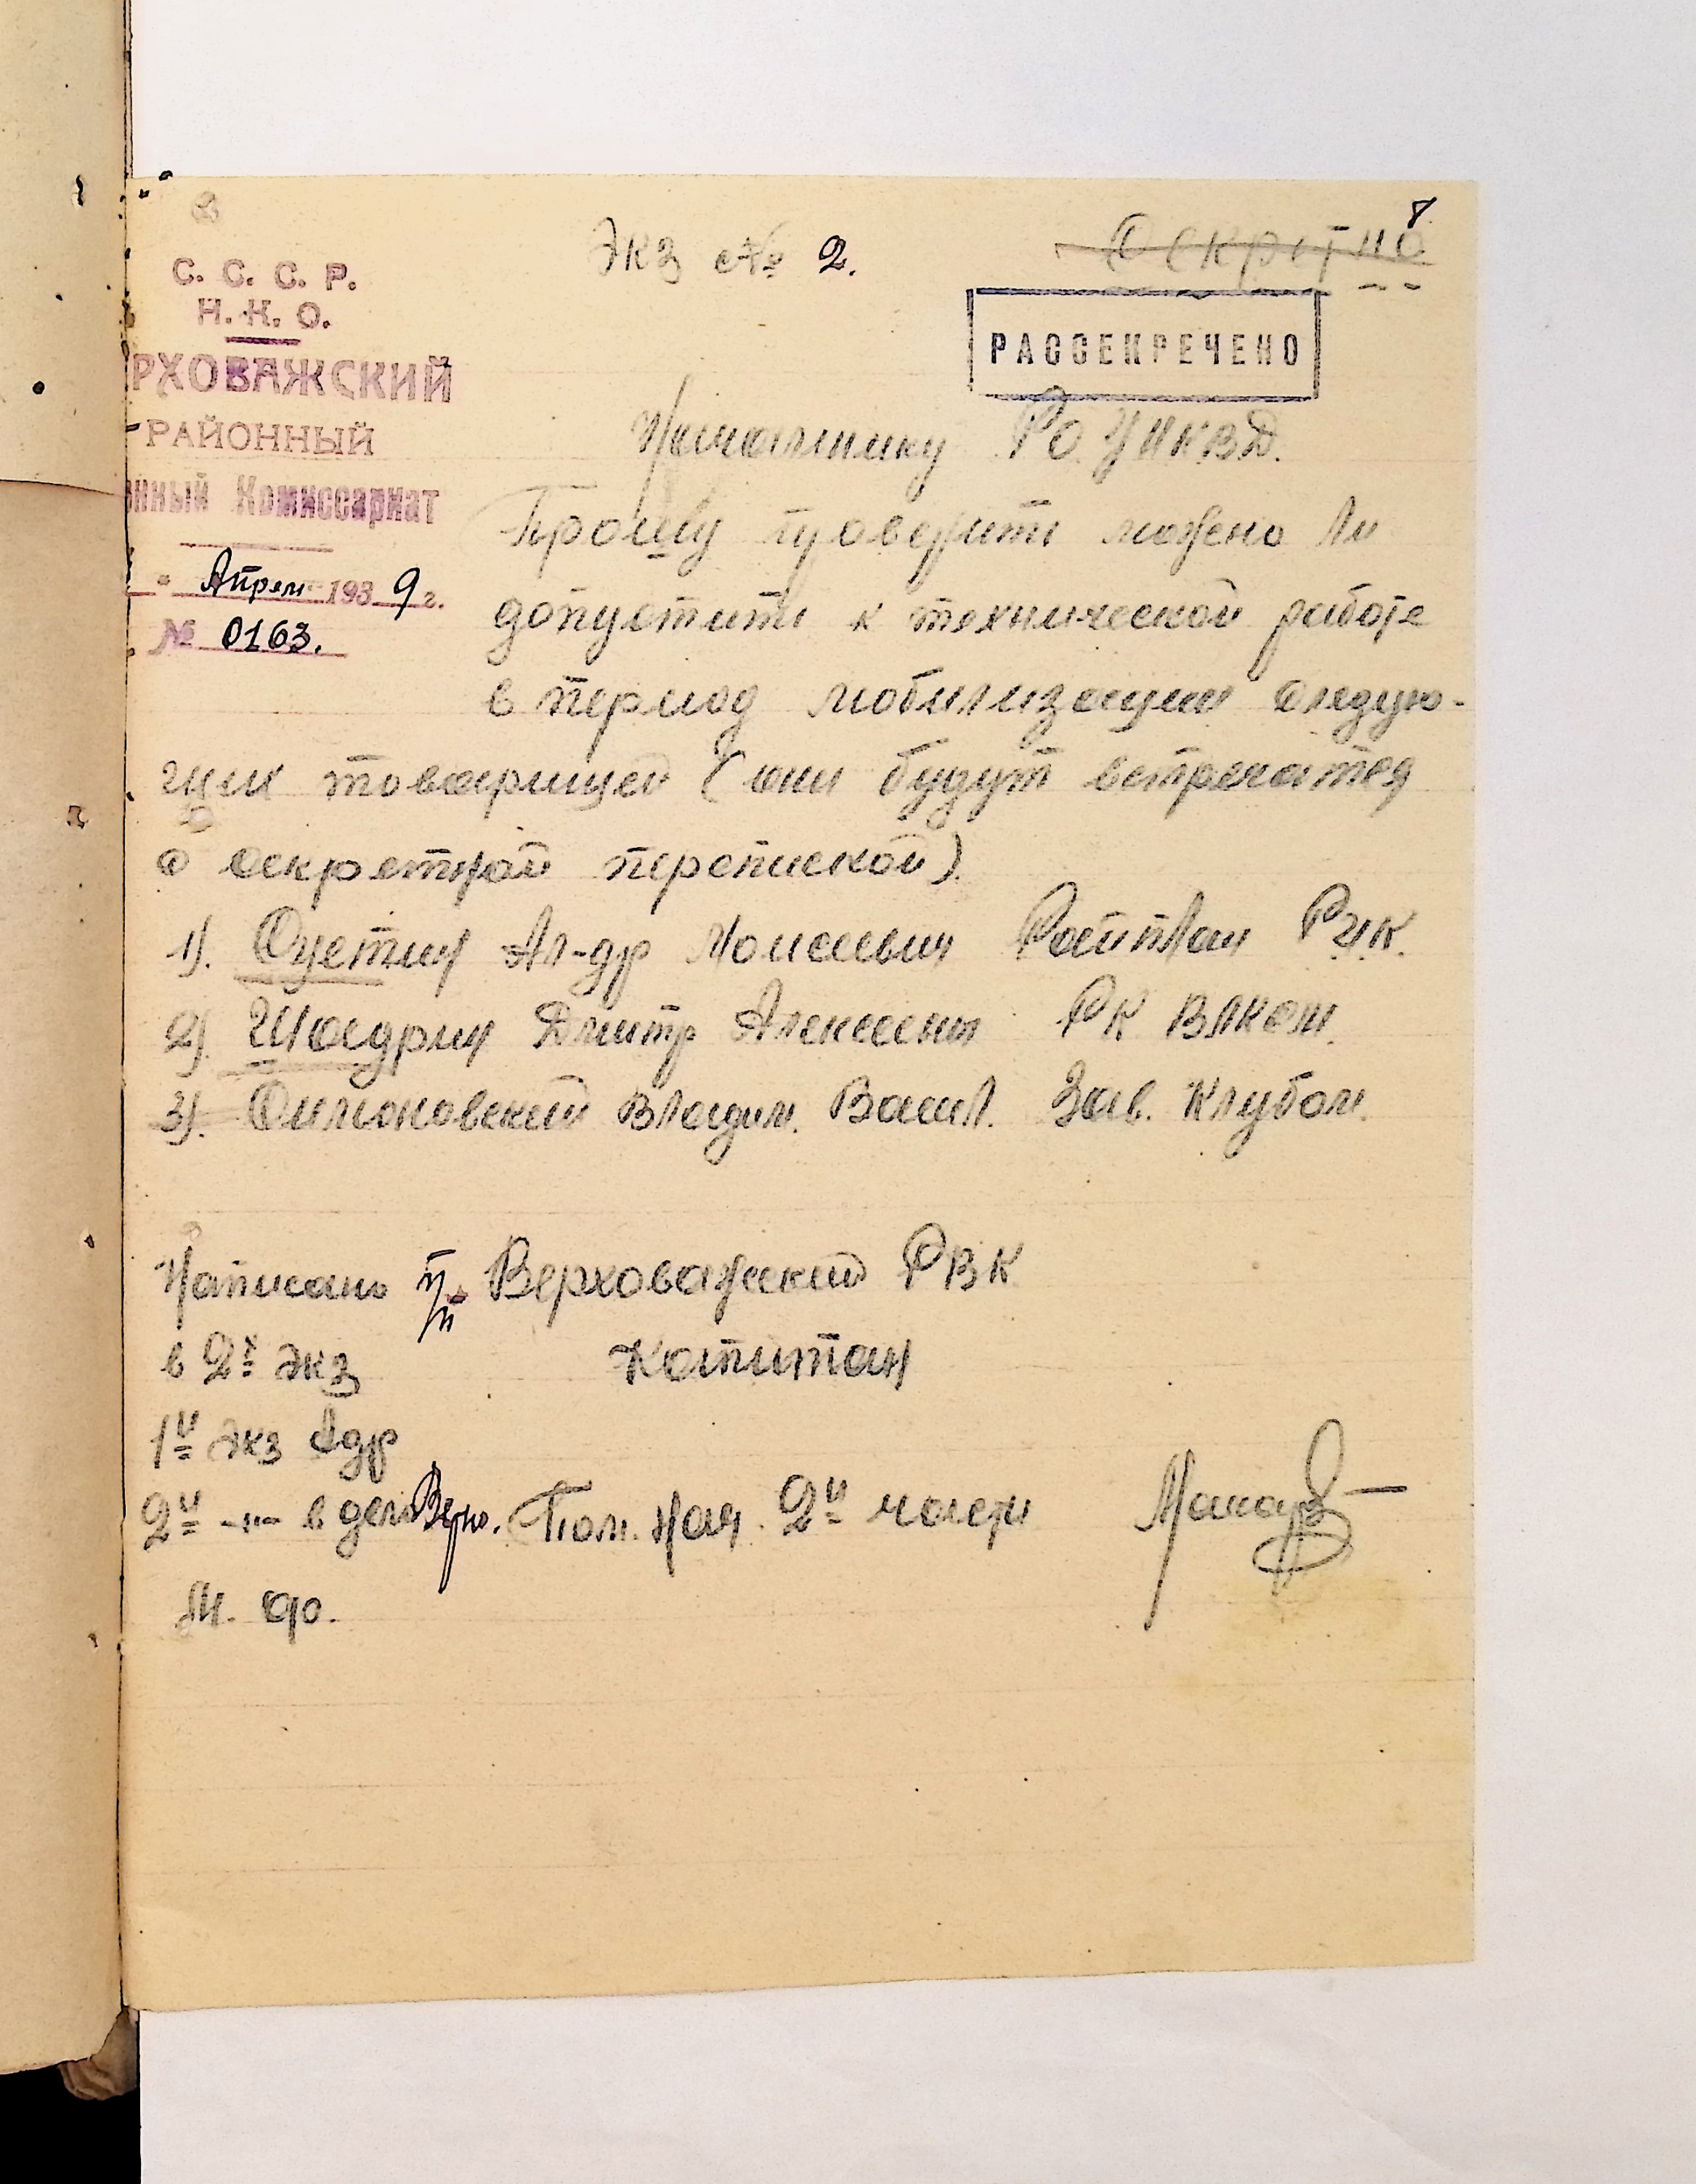 8
Экз № 2.
Секретно
РАССЕКРЕЧЕНО
С. С. С. Р.
Н. К. О.
РХОВАЖСКИЙ
РАЙОННЫЙ
нный Комиссариат
" Апрел 1939 г.
№ 0163.
Начальнику РО УНКВД.
Прошу проверить можно ли
допустить к технической работе
в период мобилизации следую-
щих товарищей (они будут встречатся
с секретной перепиской).
1). Сустин Ал-др Моисеевич Райплан РИК.
2). Шадрин Дмитр Алексеевич РК ВЛКСМ.
3). Симоновский Владим. Васил. Зав. Клубом.
Написано п/п Верховажский РВК
в 2х экз Капитан
1й экз Адр
2й -"- в дело Верно. Пом. Нач. 2й части